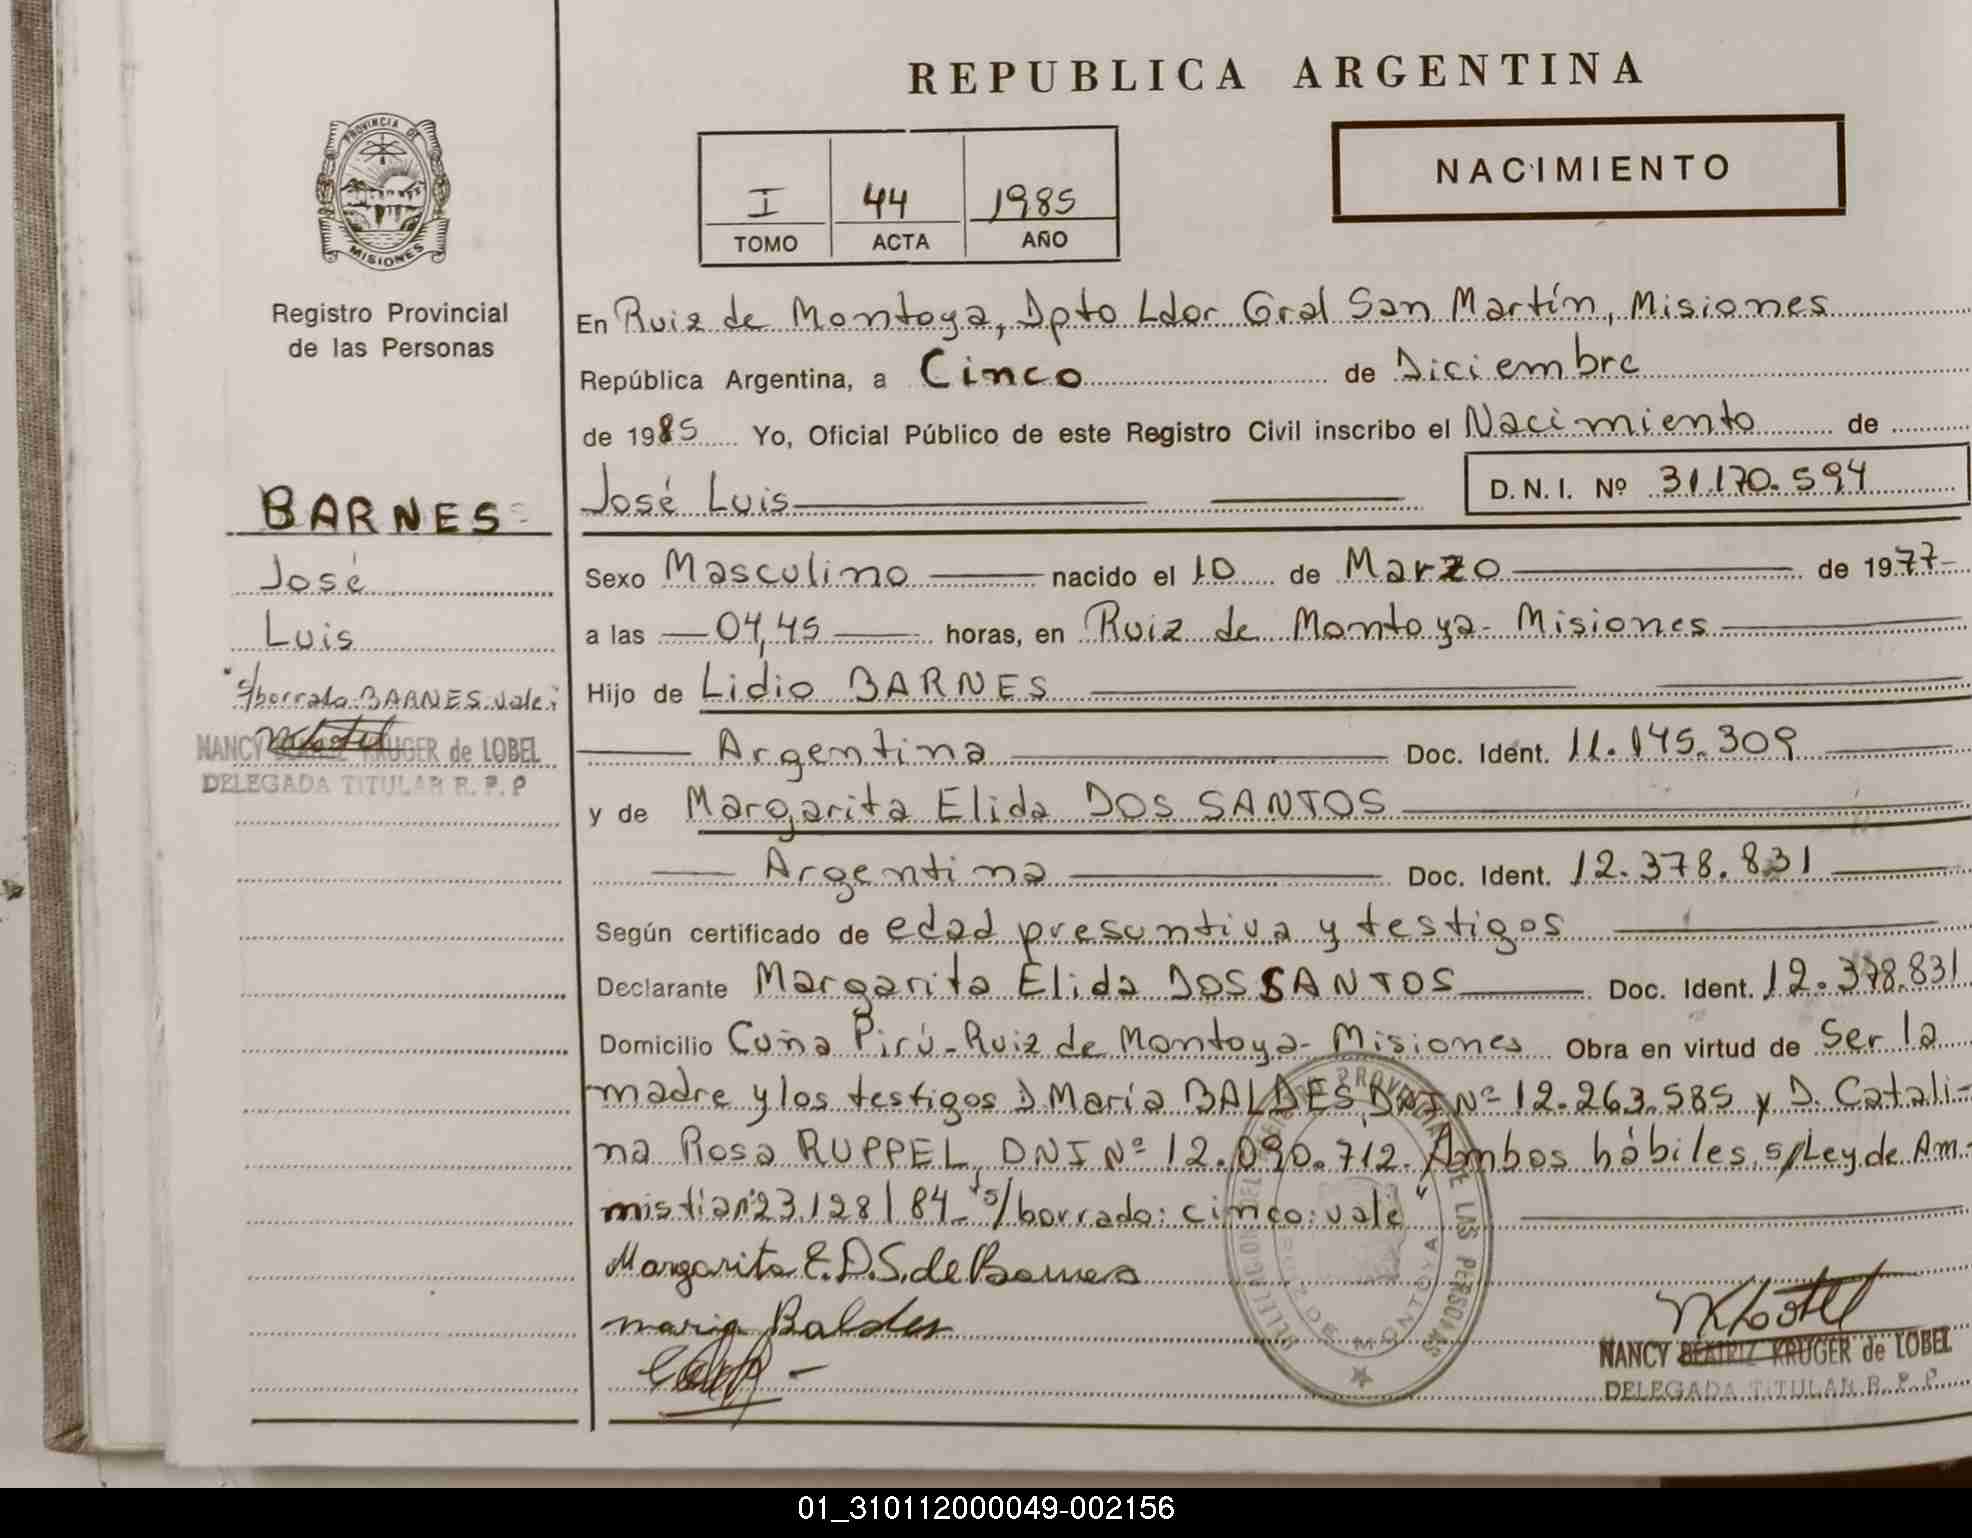 REPUBLICA ARGENTINA
NACIMIENTO
PROVINCIA DE
MISIONES
I 44 1985
TOMO ACTA AÑO
Registro Provincial
de las Personas
En Ruiz de Montoya, Dpto Ldor Gral San Martín, Misiones
República Argentina, a Cinco de Diciembre
de 1985 Yo, Oficial Público de este Registro Civil inscribo el Nacimiento de
José Luis D.N.I. Nº 31.170.594
BARNES
José
Luis
"s/borrado BARNES vale"
NANCY BEATRIZ KRUGER de LOBEL
DELEGADA TITULAR R. P. P
Sexo Masculino nacido el 10 de Marzo de 1977
a las 04,45 horas, en Ruiz de Montoya - Misiones
Hijo de Lidio BARNES
Argentina Doc. Ident. 11.145.309
y de Margarita Elida DOS SANTOS
Argentina Doc. Ident. 12.378.831
Según certificado de edad presuntiva y testigos
Declarante Margarita Elida DOS SANTOS Doc. Ident. 12.378.831
Domicilio Cuña Pirú - Ruiz de Montoya - Misiones Obra en virtud de Ser la
madre y los testigos D. María BALDES DNI Nº 12.263.585 y D. Catali-
na Rosa RUPPEL, DNI Nº 12.090.712. Ambos hábiles, s/Ley de Am-
mistía nº 23.128/84 - "s/borrado: cinco: vale"
Margarita E. D. S. de Barnes
maria Baldes
NANCY BEATRIZ KRUGER de LOBEL
DELEGADA TITULAR R. P. P.
01_310112000049-002156